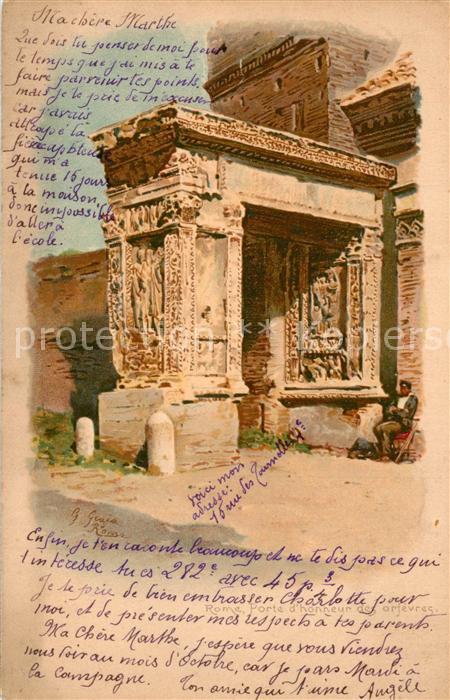 Ma chère Marthe
Que dois tu penser de moi pour
le temps que j'ai mis à te
faire parvenir tes points,
mais je te prie de m'excuser
car j'avais
attrapé la
qui m'a
tenue 15 jours
à la maison,
donc impossible
d'aller à
l'école.
protection ** copyright
Voici mon
adresse:
15 rue des Tournelles
G. Greco
Roma
Enfin, je t'en raconte beaucoup et ne te dis pas ce qui
t'intéresse tu es 282e avec 45 p. 3.
Je te prie de bien embrasser Charlotte pour
moi, et de présenter mes respects à tes parents.
Rome, Porte d'honneur des orfèvres.
Ma Chère Marthe, j'espère que vous viendrez
nous voir au mois d'Octobre, car je pars Mardi à
la campagne. Ton amie qui t'aime Angèle